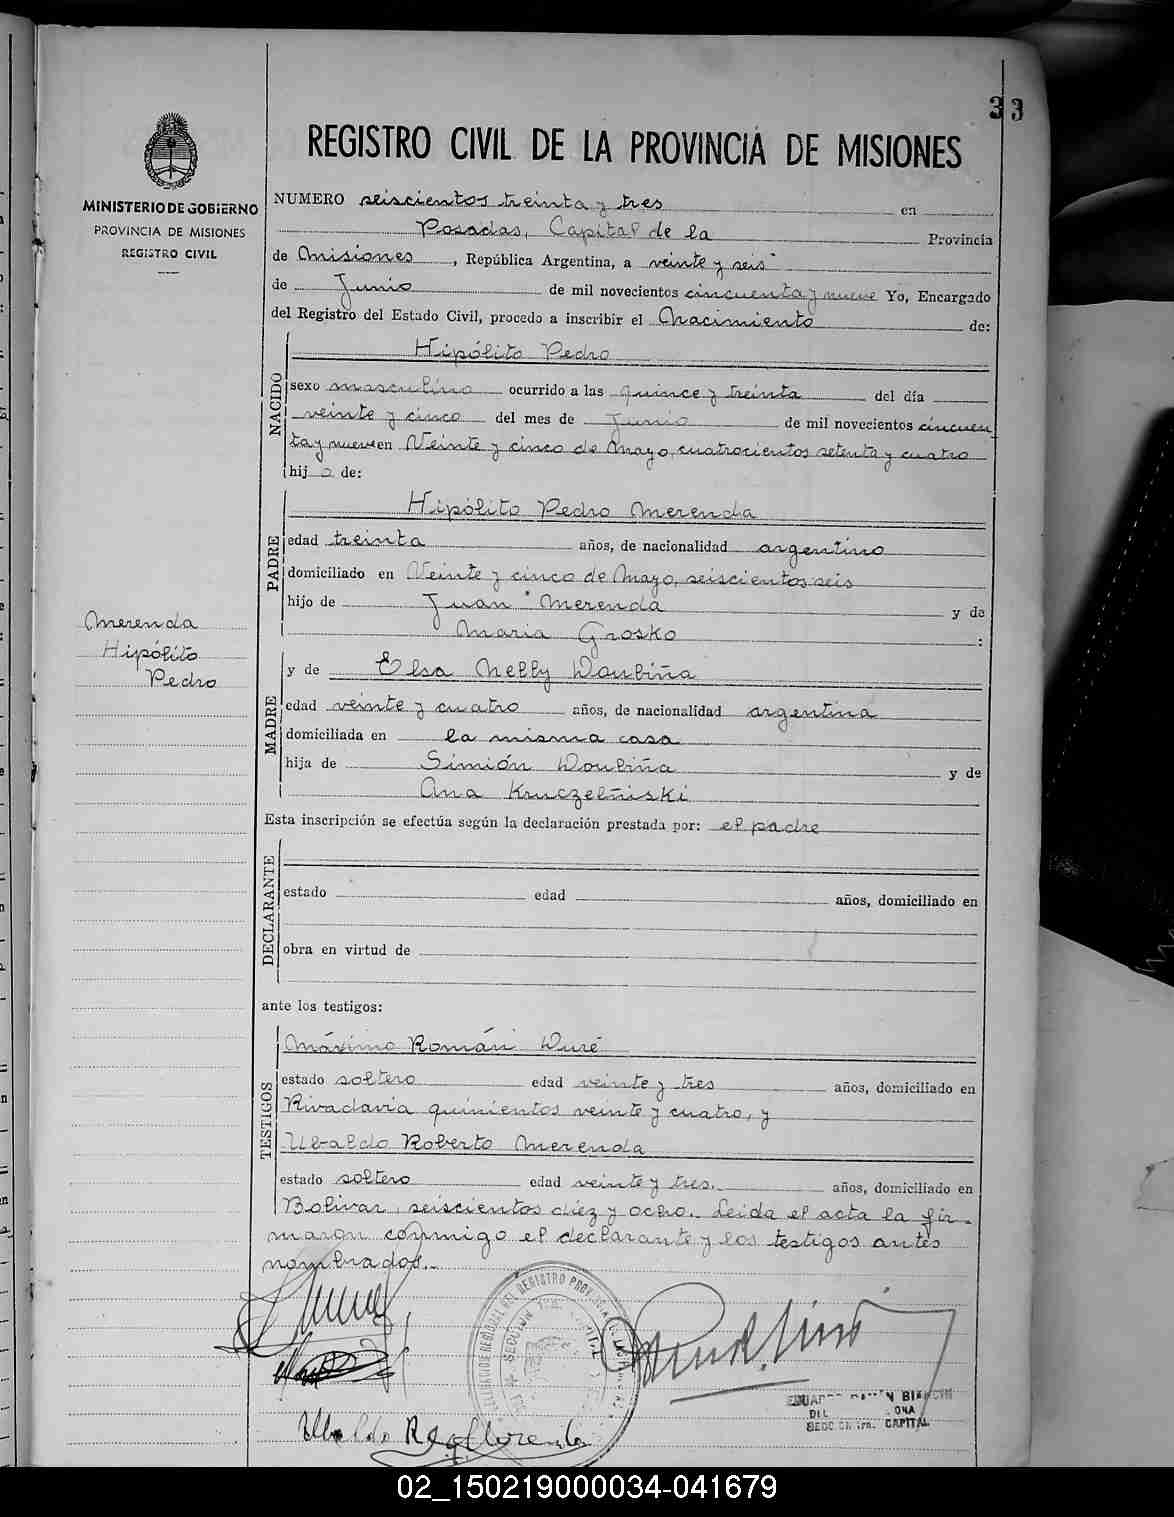 33
REGISTRO CIVIL DE LA PROVINCIA DE MISIONES
MINISTERIO DE GOBIERNO
PROVINCIA DE MISIONES
REGISTRO CIVIL
NUMERO seiscientos treinta y tres en
Posadas, Capital de la Provincia
de Misiones, República Argentina, a veinte y seis
de Junio de mil novecientos cincuenta y nueve Yo, Encargado
del Registro del Estado Civil, procedo a inscribir el Nacimiento de:
NACIDO
Hipólito Pedro
sexo masculino ocurrido a las quince y treinta del día
veinte y cinco del mes de Junio de mil novecientos cincuen
ta y nueve en Veinte y cinco de Mayo, cuatrocientos setenta y cuatro
hijo de:
PADRE
Hipólito Pedro Merenda
edad treinta años, de nacionalidad argentino
domiciliado en Veinte y cinco de Mayo, seiscientos seis
hijo de Juan Merenda y de
Maria Grosko :
Merenda
Hipólito
Pedro
MADRE
y de Elsa Nelly Woubiña
edad veinte y cuatro años, de nacionalidad argentina
domiciliada en la misma casa
hija de Simión Woubiña y de
Ana Kruczelñiski
Esta inscripción se efectúa según la declaración prestada por: el padre
DECLARANTE
estado edad años, domiciliado en
obra en virtud de
ante los testigos:
TESTIGOS
Máximo Román Duré
estado soltero edad veinte y tres años, domiciliado en
Rivadavia quinientos veinte y cuatro, y
Ubaldo Roberto Merenda
estado soltero edad veinte y tres. años, domiciliado en
Bolivar, seiscientos diez y ocho. Leida el acta la fir-
maron conmigo el declarante y los testigos antes
nombrados.
CAPITAL
02_150219000034-041679